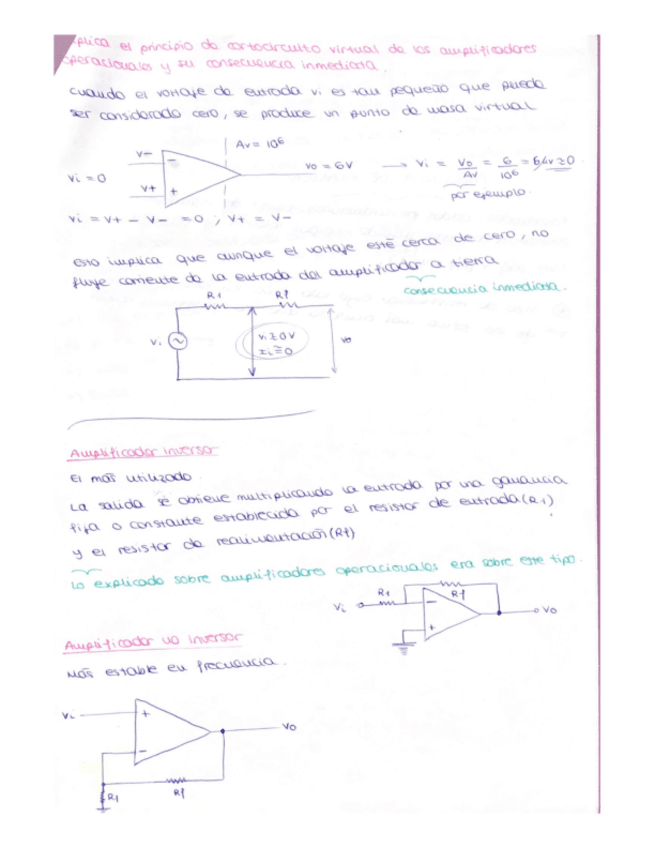 explica el principio de cortocircuito virtual de los amplificadores
operacionales y su consecuencia inmediata.
cuando el voltaje de entrada vi es tan pequeño que puede
ser considerado cero, se produce un punto de masa virtual
Av = 10⁶
V-
-
vi = 0
V+
+
vo = 6V
→ vi = Vo/Av = 6/10⁶ = 6μv ≥ 0
por ejemplo.
vi = V+ - V- = 0 ; V+ = V-
Esto implica que aunque el voltaje esté cerca de cero, no
fluye corriente de la entrada del amplificador a tierra
consecuencia inmediata.
R1 Rf
vi
vi ≅ 0V
Ii ≅ 0
vo
Amplificador inversor
El más utilizado.
La salida se obtiene multiplicando la entrada por una ganancia
fija o constante establecida por el resistor de entrada (R1)
y el resistor de realimentación (Rf)
Lo explicado sobre amplificadores operacionales era sobre este tipo.
Vi
R1
Rf
-
+
Vo
Amplificador no inversor
Más estable en frecuencia.
Vi
+
-
Vo
R1
Rf